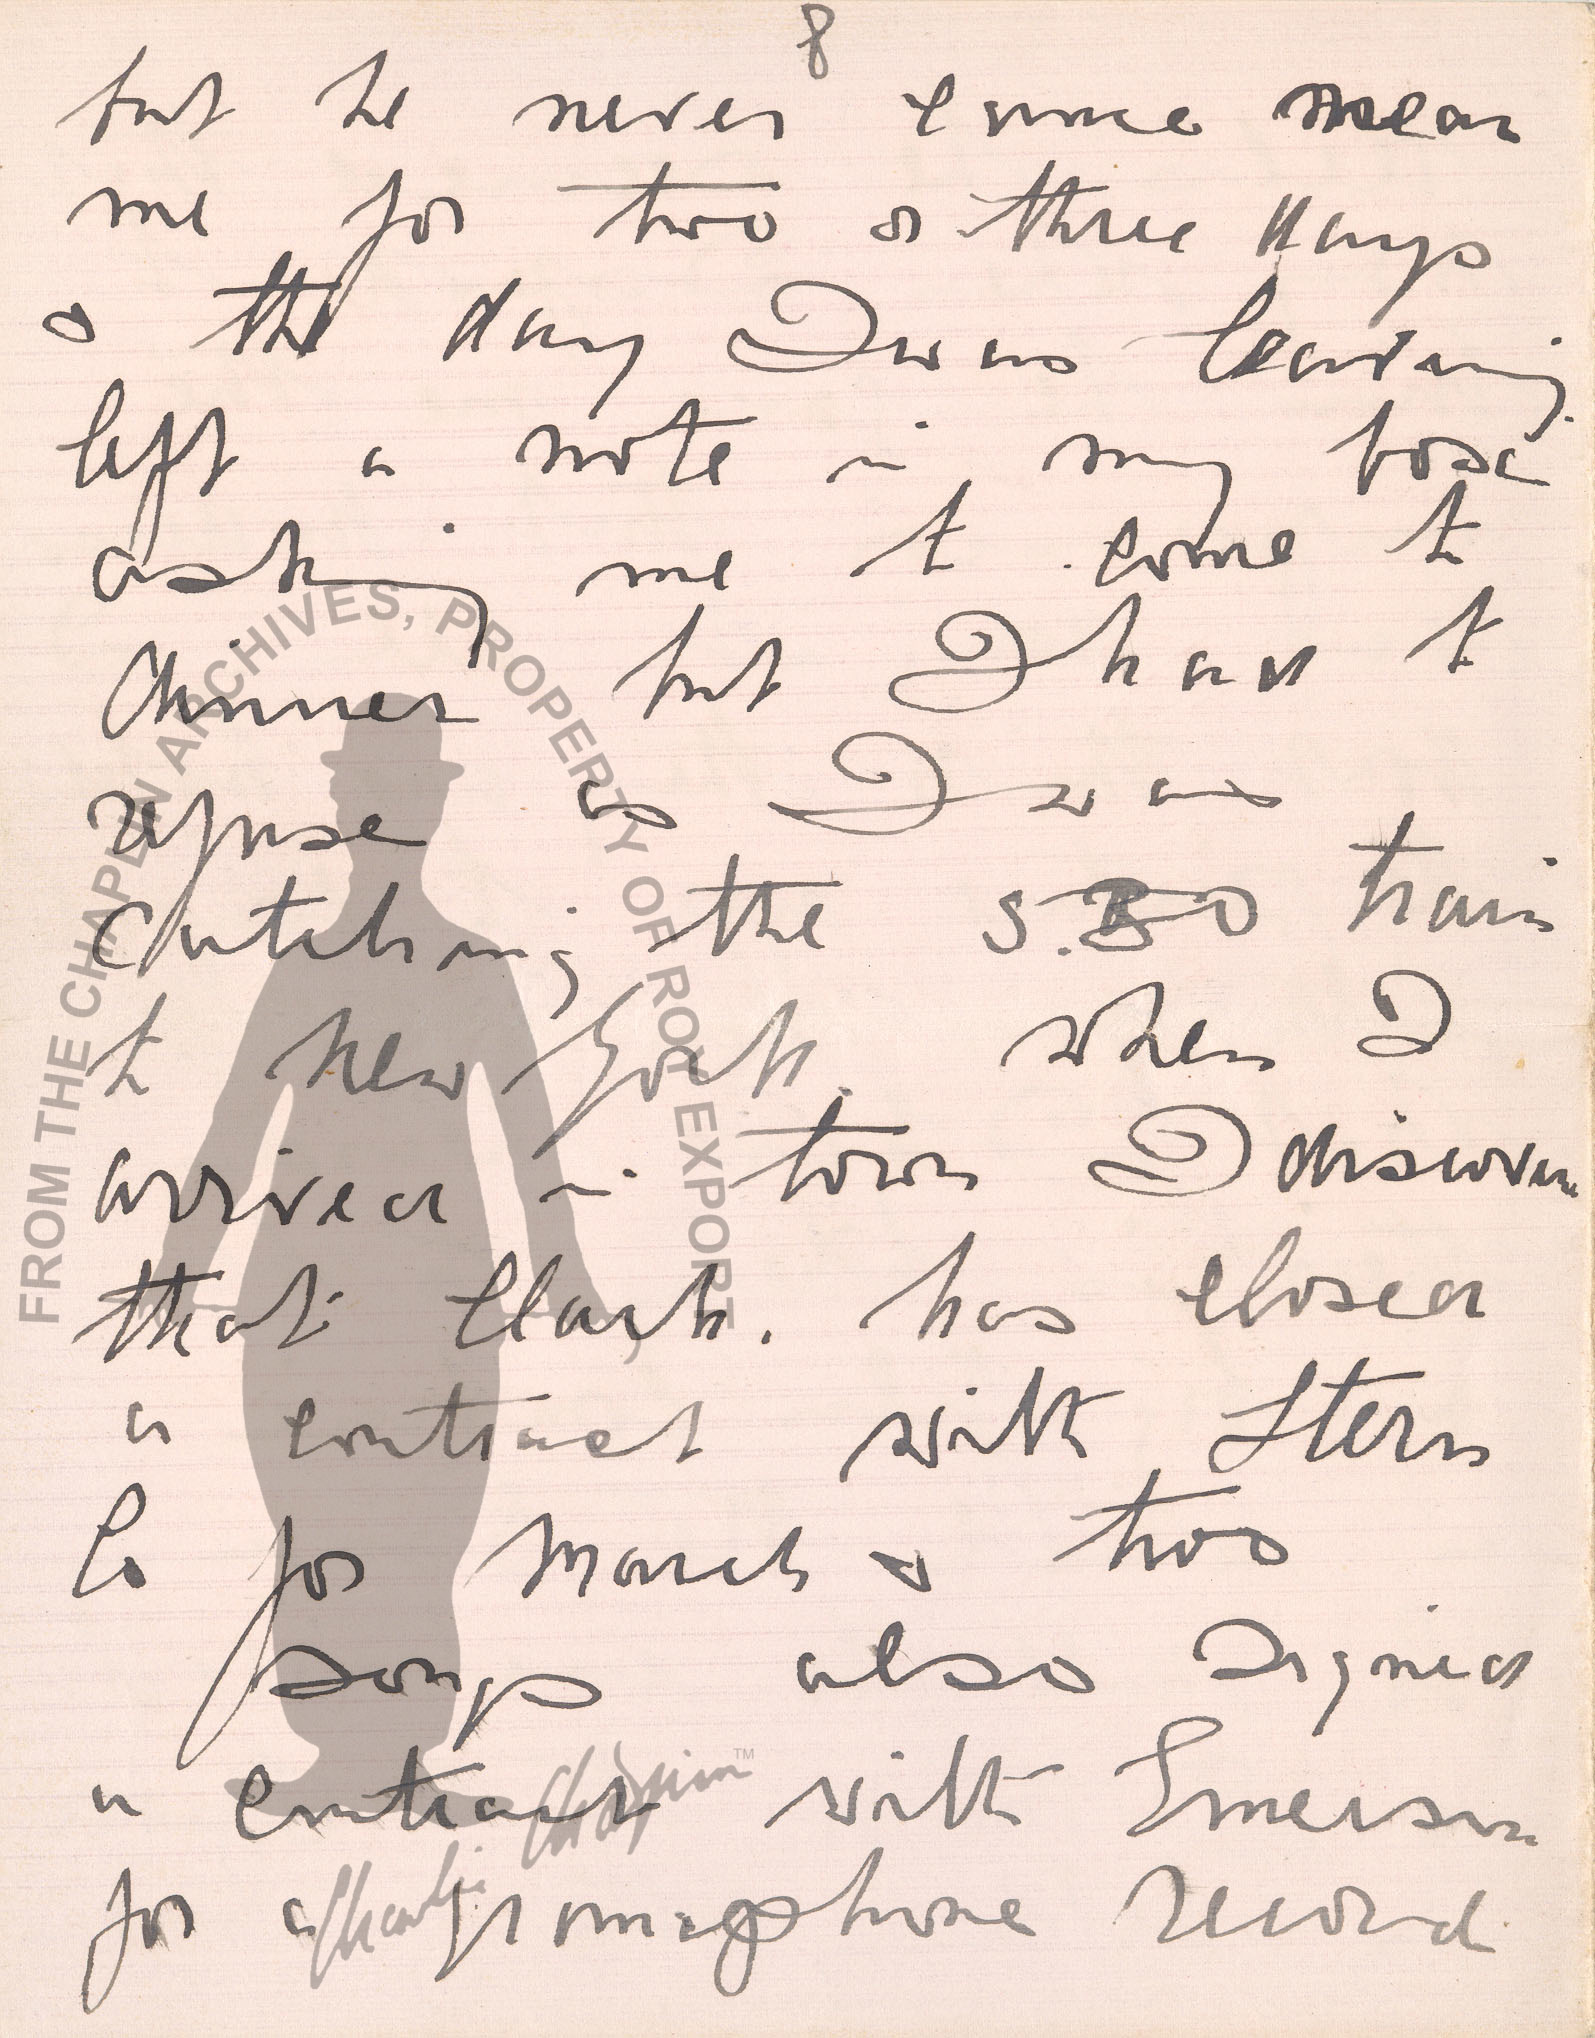 8
but he never came near
me for two or three days
& the day I was leaving
left a note in my box
asking me to come to
dinner but I had to
refuse as I was
catching the 5.30 train
to New York. when I
arrived in town I discover
that Clark. has closed
a contract with Stern
Co for March & two
songs also signed
a contract with Emerson
for a gramophone record
FROM THE CHAPLIN ARCHIVES, PROPERTY OF ROY EXPORT
Charlie Chaplin™